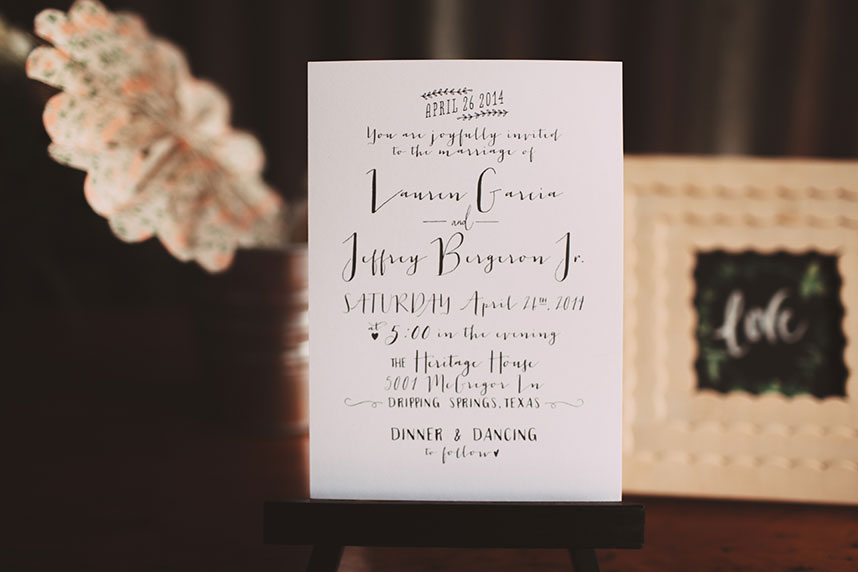 APRIL 26 2014
You are joyfully invited
to the marriage of
Lauren Garcia
and
Jeffrey Bergeron Jr.
SATURDAY April 26th, 2014
at 5:00 in the evening
THE Heritage House
5001 McGregor Ln
DRIPPING SPRINGS, TEXAS
DINNER & DANCING
to follow
love